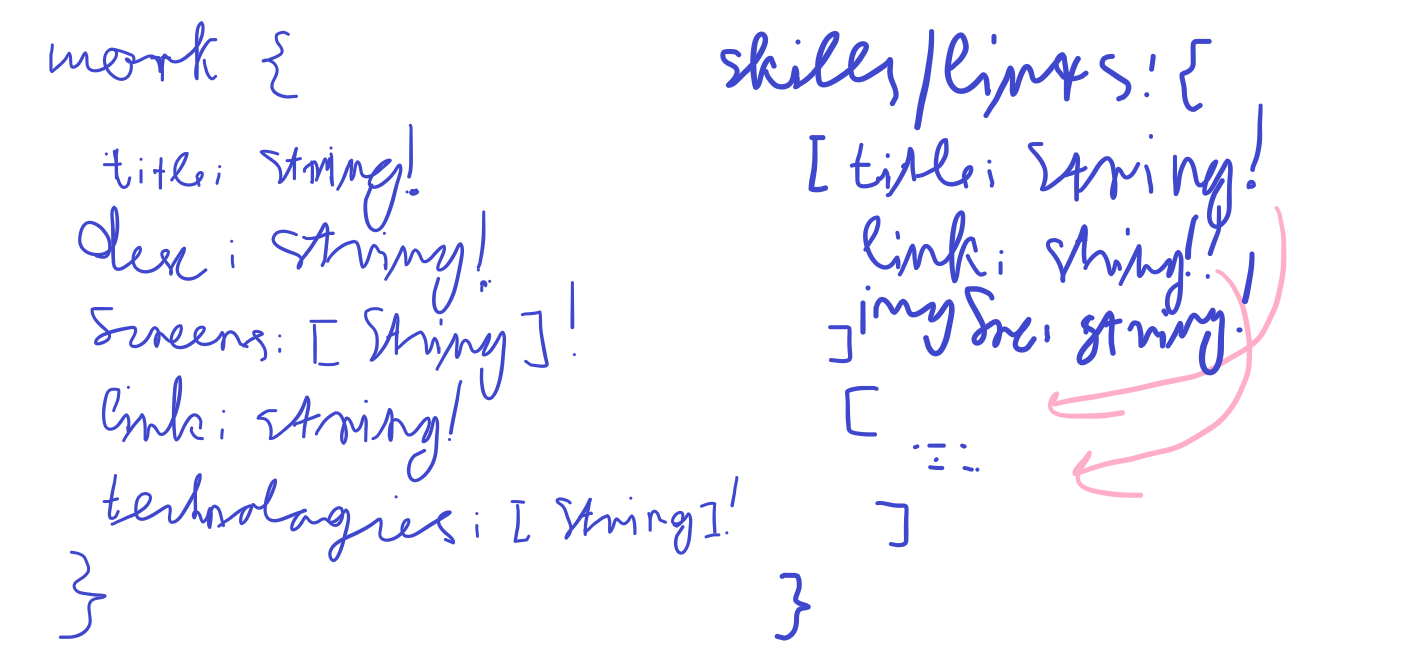 work {
title: string!
desc: string!
screens: [string]!
link: string!
technologies: [string]!
}
skills/links: {
[title: string!
link: string!
imgSrc: string!
]
[
]
}